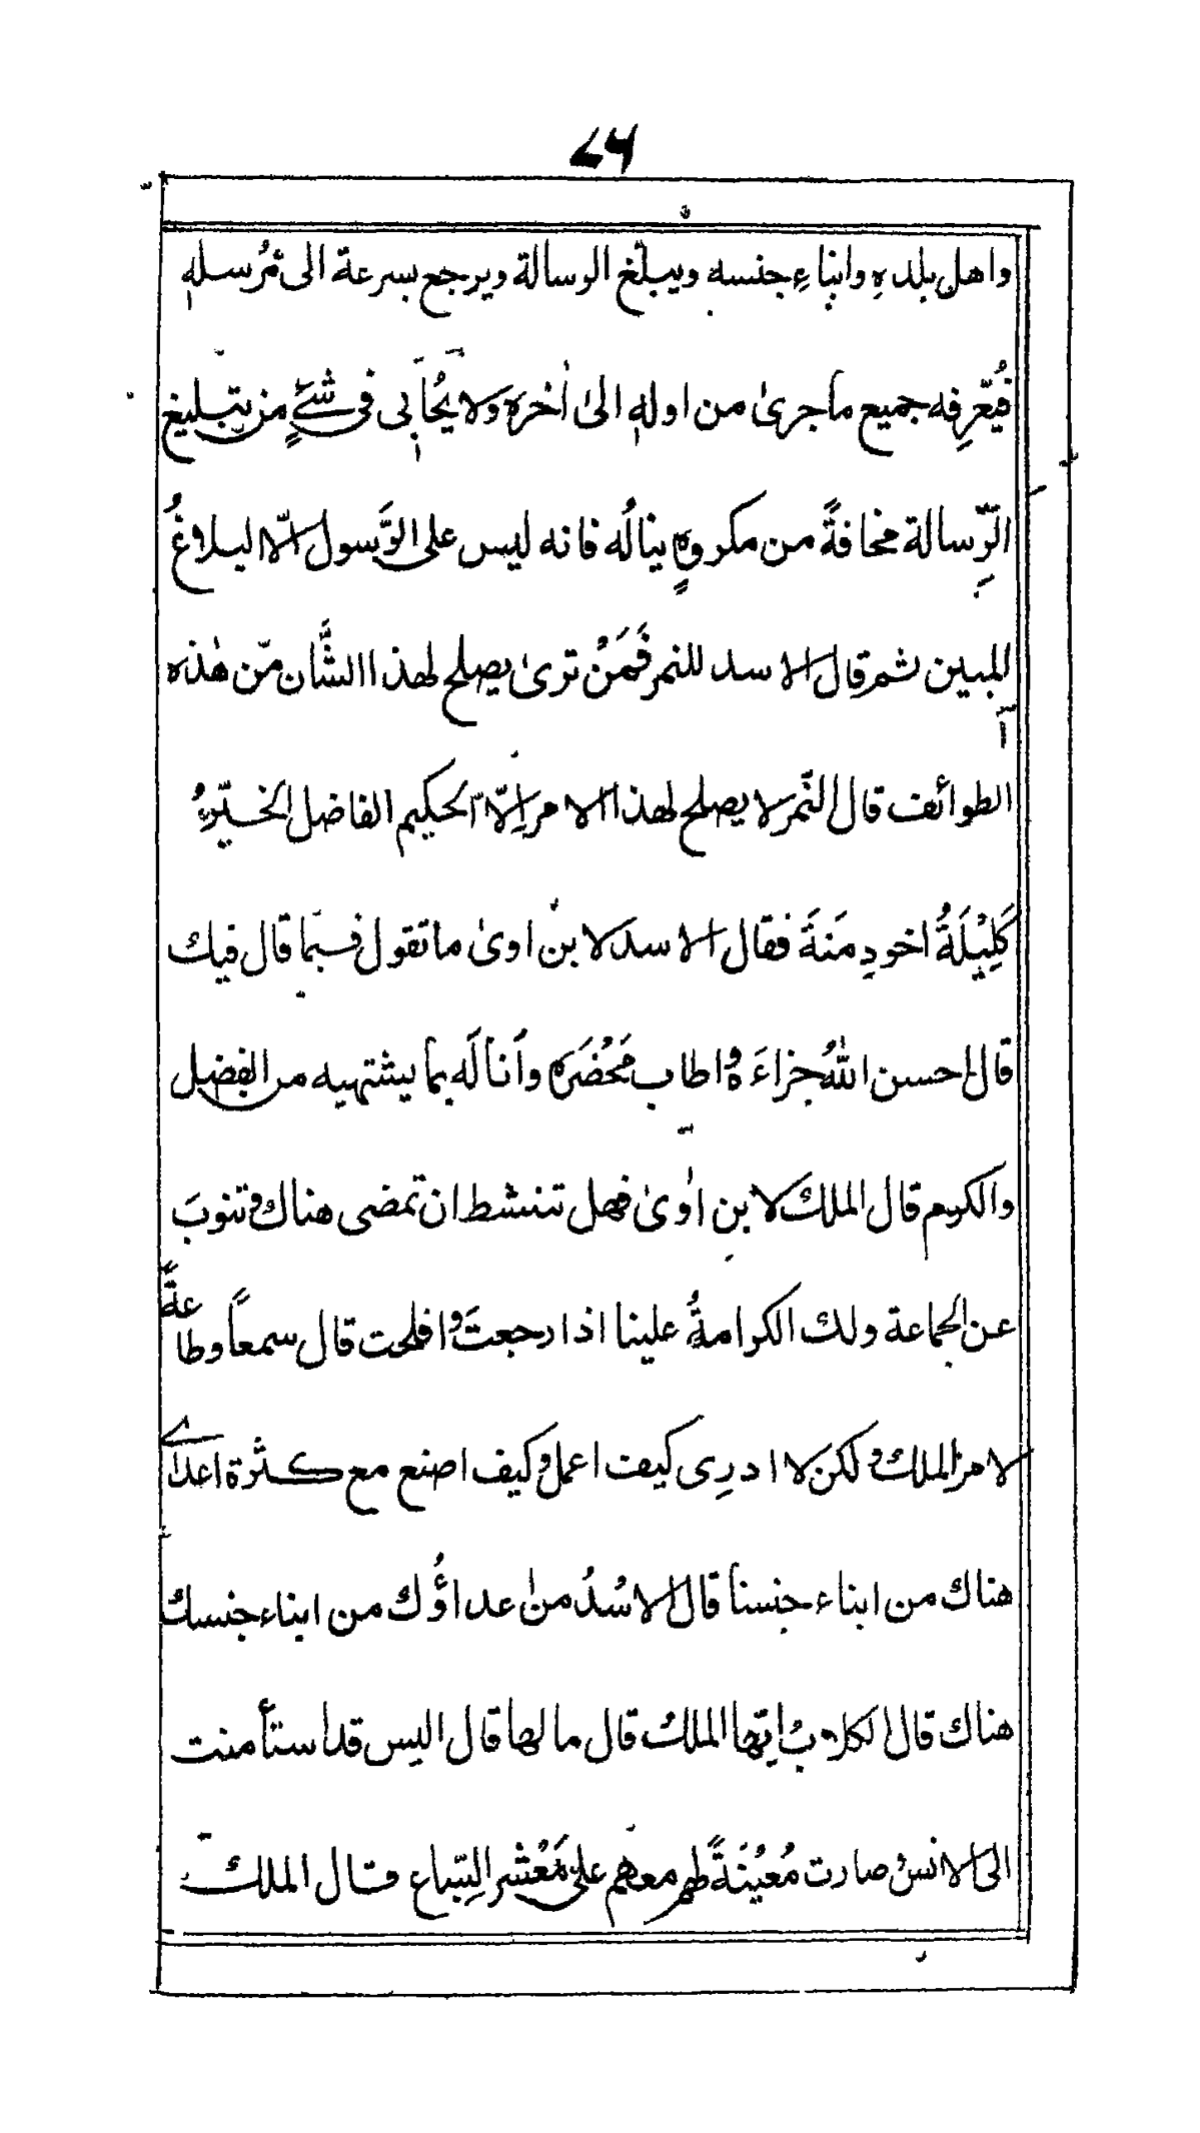 ٤٦
واهل بلدهِ وابناءِ جنسه ويبلّغ الرسالة ويرجع بسرعة الى مُرسله
فيُعّرِفه جميع ما جرىٰ من اوله الىٰ اٰخره ولا يُحابى فى شئٍ من تبليغ
الرِّسالة مخافةً من مكروهٍ ينالُه فانه ليس على الرَّسول الّا البلاغُ
المبين ثم قال الاسد للنمر فَمَنْ ترىٰ يصلح لهذا الشَّان مّن هٰذه
الطوائف قال النّمر لا يصلح لهذا الامر اِلّا الحكيم الفاضل الخيّرُ
كَلِيْلَةُ اخو دِمَنَةَ فقال الاسد لابن اٰوىٰ ما تقول فيما قال فيك
قال احسن اللّٰهُ جزاءَهُ واطاب مَحْضَره وأناله بما يشتهيه من الفضل
والكرم قال الملك لابن اٰوىٰ فهل تنشط ان تمضى هناك وتنوبَ
عن الجماعة ولك الكرامةُ علينا اذا رجعتَ وافلحت قال سمعاً وطاعةً
لامر الملك ولكن لا ادرِى كيف اعمل وكيف اصنع مع كثرة اعدائے
هناك من ابناء جنسنا قال الاسُدُ من اعداؤُك من ابناء جنسك
هناك قال الكلابُ ايّها الملك قال ما لها قال اليس قد استأمنت
الى الانس وصارت مُعيْنَةً لهم معهم على مَعْشر السّباع قال الملك